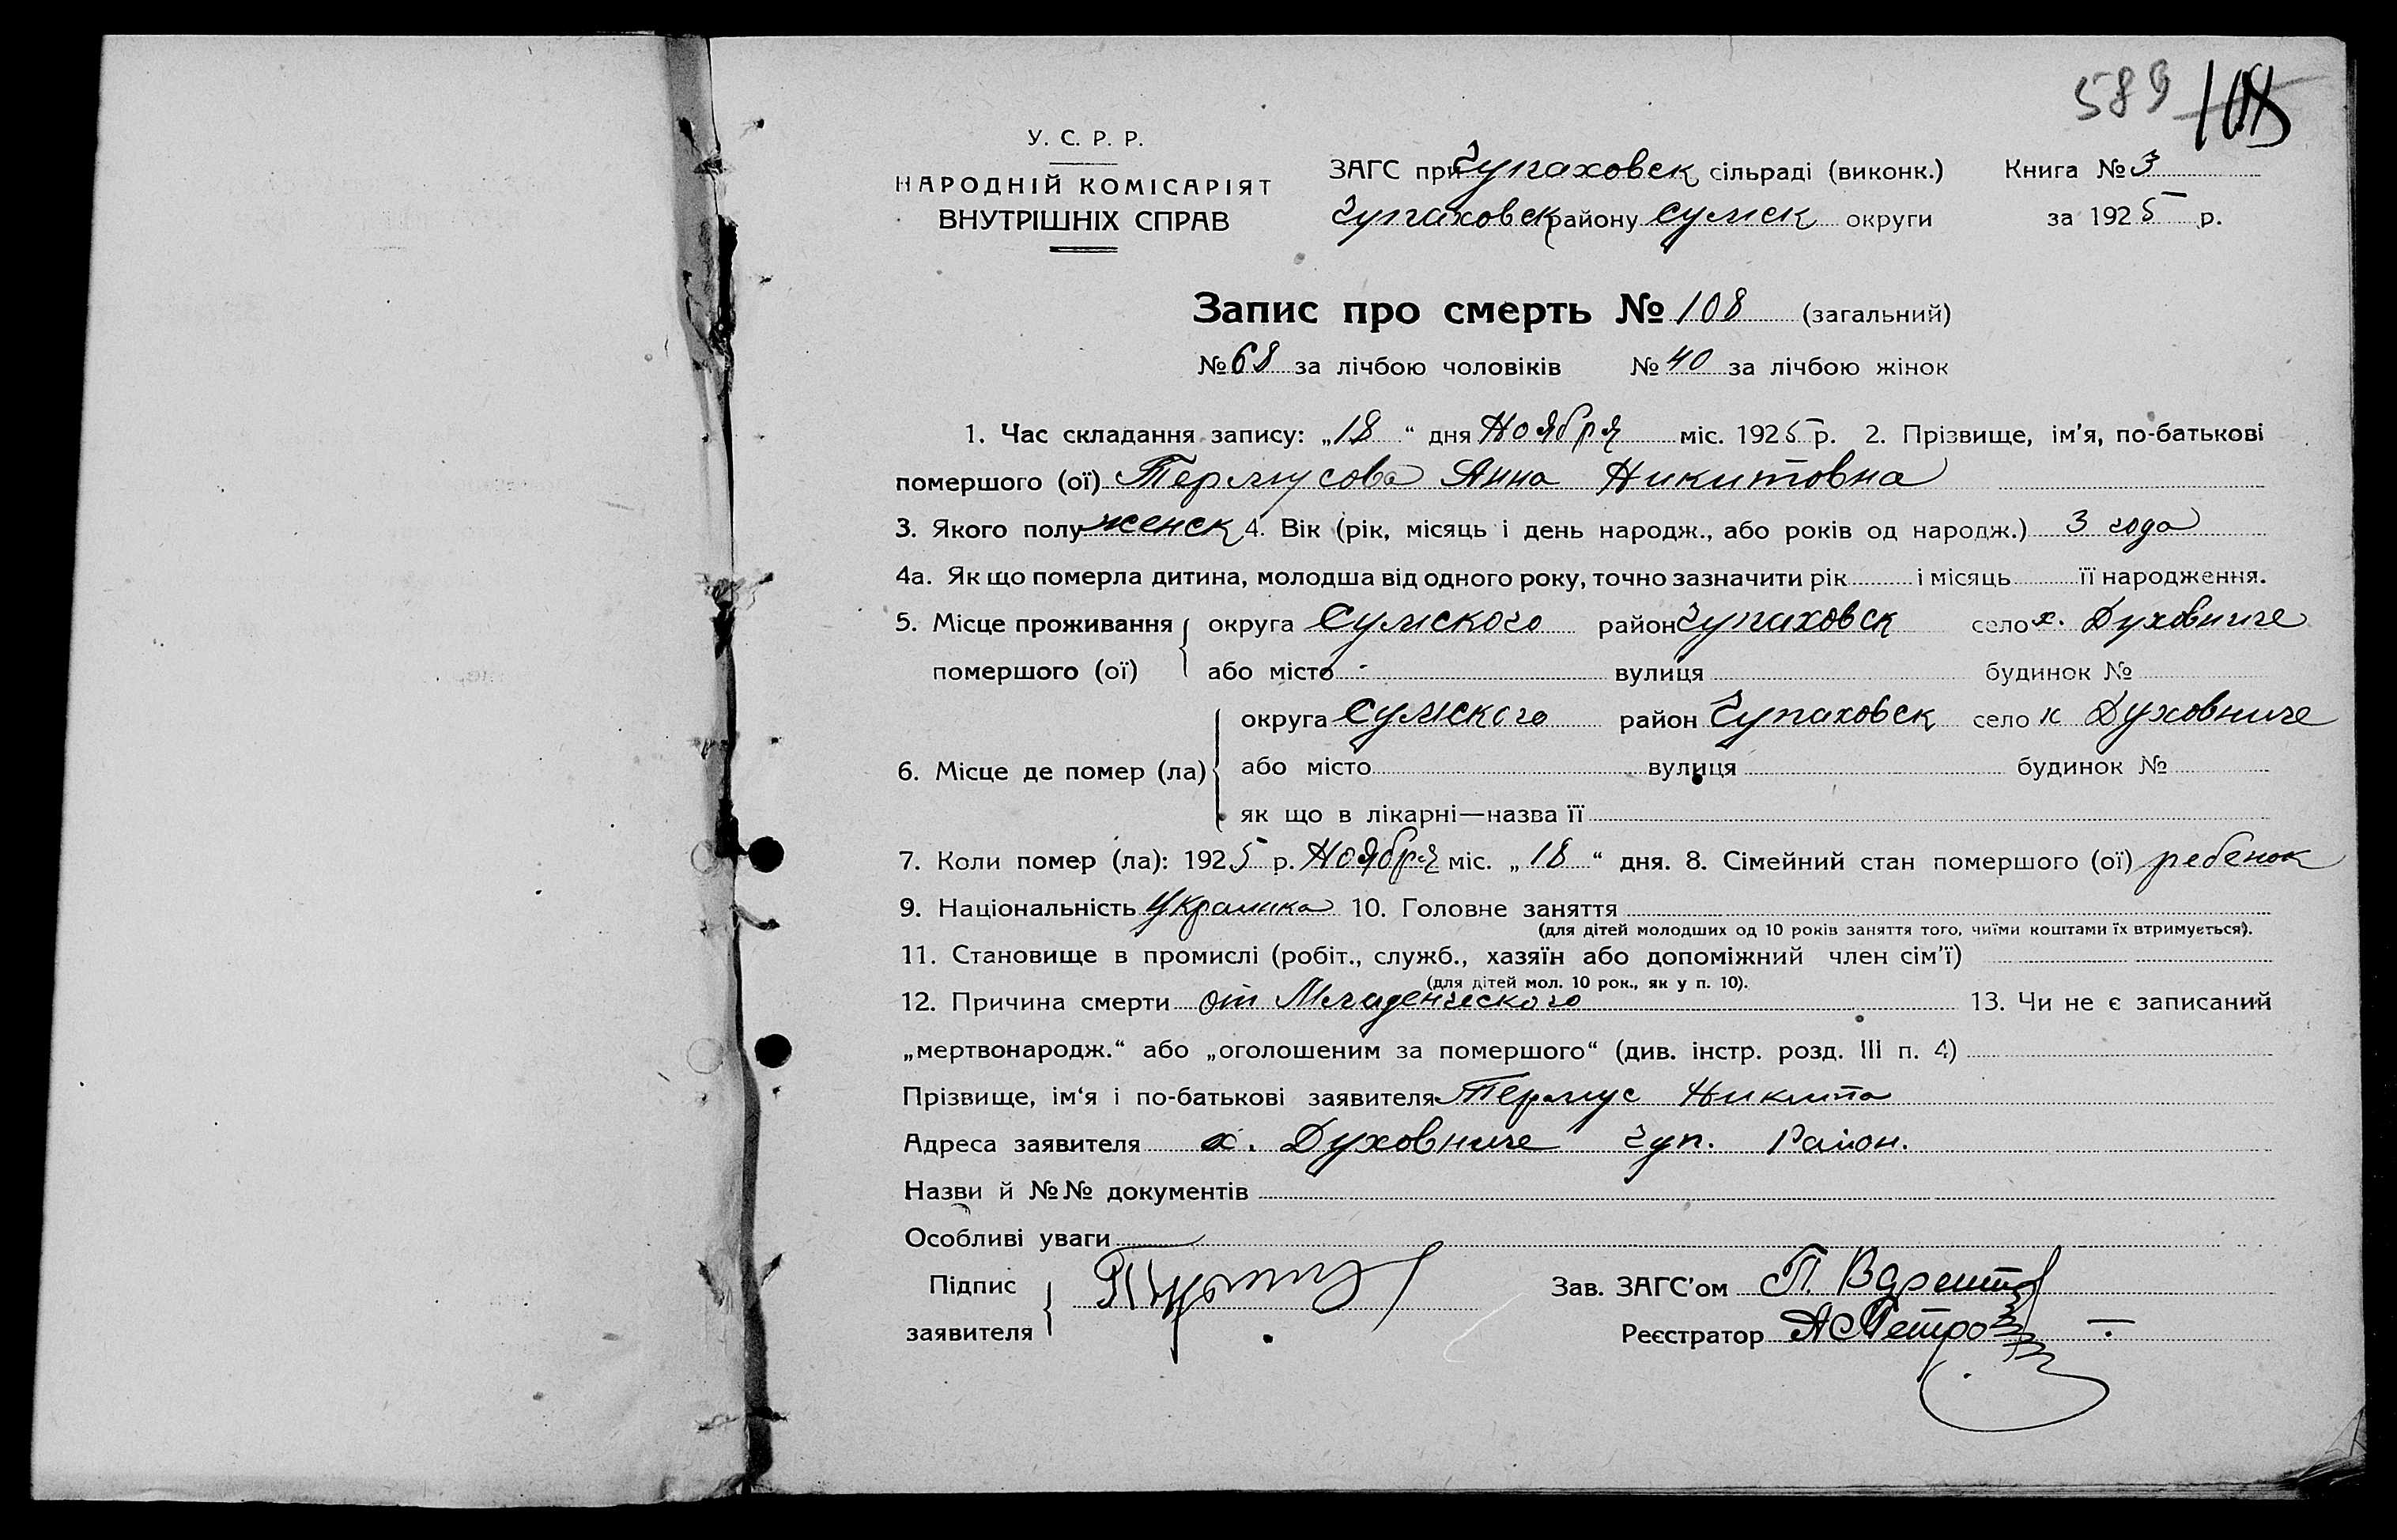 589 108
У. С. Р. Р.
НАРОДНІЙ КОМІСАРІЯТ
ВНУТРІШНІХ СПРАВ
ЗАГС при Чупаховск сільраді (виконк.) Книга № 3
Чупаховск району Сумск округи за 1925 р.
Запис про смерть № 108 (загальний)
№ 68 за лічбою чоловіків № 40 за лічбою жінок
1. Час складання запису: „18“ дня Ноября міс. 1925 р. 2. Прізвище, ім'я, по-батькові
помершого (ої) Термусова Анна Никитовна
3. Якого полу женск 4. Вік (рік, місяць і день народж., або років од народж.) 3 года
4а. Як що померла дитина, молодша від одного року, точно зазначити рік і місяць її народження.
5. Місце проживання помершого (ої) округа Сумского район Чупаховск село х. Духовниче
або місто вулиця будинок №
6. Місце де помер (ла) округа Сумского район Чупаховск село х Духовниче
або місто вулиця будинок №
як що в лікарні—назва її
7. Коли помер (ла): 1925 р. Ноября міс. „18“ дня. 8. Сімейний стан помершого (ої) ребенок
9. Національність Украинка 10. Головне заняття
(для дітей молодших од 10 років заняття того, чиїми коштами їх втримується).
11. Становище в промислі (робіт., служб., хазяїн або допоміжний член сім'ї)
(для дітей мол. 10 рок., як у п. 10).
12. Причина смерти от Младенческого 13. Чи не є записаний
„мертвонародж.“ або „оголошеним за помершого“ (див. інстр. розд. III п. 4)
Прізвище, ім'я і по-батькові заявителя Термус Никита
Адреса заявителя х. Духовниче Чуп. Район.
Назви й №№ документів
Особливі уваги
Підпис заявителя
Зав. ЗАГС'ом П.
Реєстратор А Петро